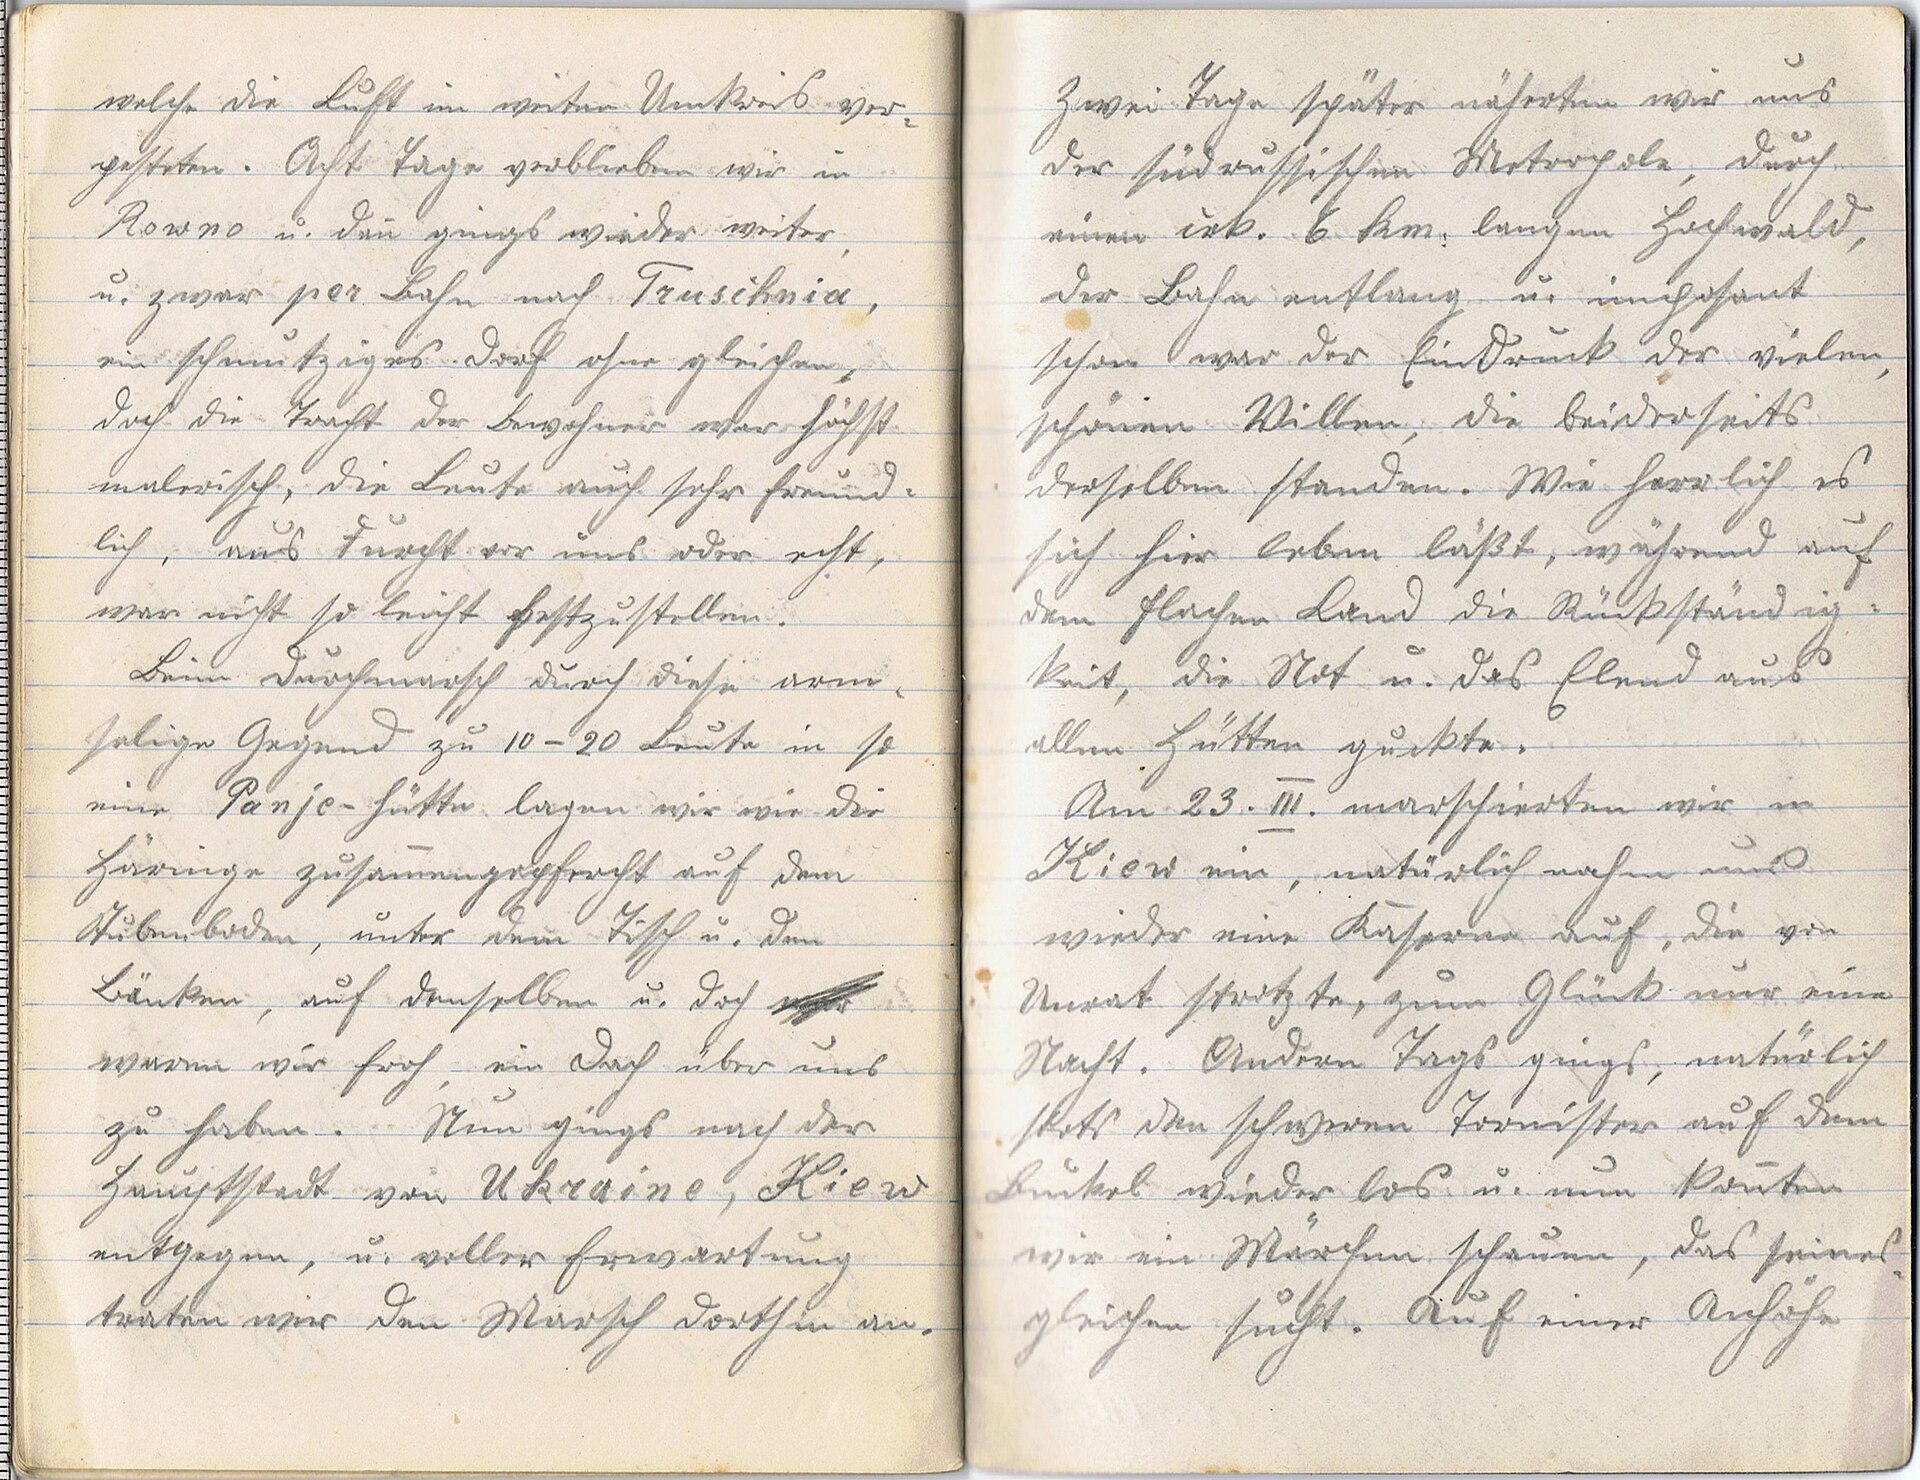 welche die Luft im weiten Umkreis ver-
pesteten. Acht Tage verblieben wir in
Rowno u. dañ gings wieder weiter,
u. zwar per Bahn nach Truschnia,
ein schmutziges Dorf ohne gleichen,
doch die Tracht der Bewohner war höchst
malerisch, die Leute auch sehr freund-
lich, aus Furcht vor uns oder echt,
war nicht so leicht festzustellen.
Beim Durchmarsch durch diese arm-
selige Gegend zu 10-20 Leute in so
eine Panje-Hütte lagen wir wie die
Häringe zusam̅engepfercht auf dem
Stubenboden, unter dem Tisch u. den
Bänken, auf denselben u. doch
waren wir froh, ein Dach über uns
zu haben. Nun gings nach der
Hauptstadt von Ukraine, Kiew
entgegen, u. voller Erwartung
traten wir den Marsch dorthin an.
Zwei Tage später näherten wir uns
der südrussischen Metropole, durch
einen cirk. 6 km. langen Hochwald,
der Bahn entlang u. imposant
schon war der Eindruck der vielen,
schönen Villen, die beiderseits
derselben standen. Wie herrlich es
sich hier leben läßt, während auf
dem flachen Land die Rückständig-
keit, die Not u. das Elend aus
allen Hütten guckte.
Am 23. III. marschierten wir in
Kiew ein, natürlich nahm uns
wieder eine Kaserne auf, die von
Unrat strotzte, zum Glück nur eine
Nacht. Andern Tags gings, natürlich
stets den schweren Tornister auf dem
Buckel wieder los u. nun koñten
wir ein Märchen schauen, das seines-
gleichen sucht. Auf einer Anhöhe